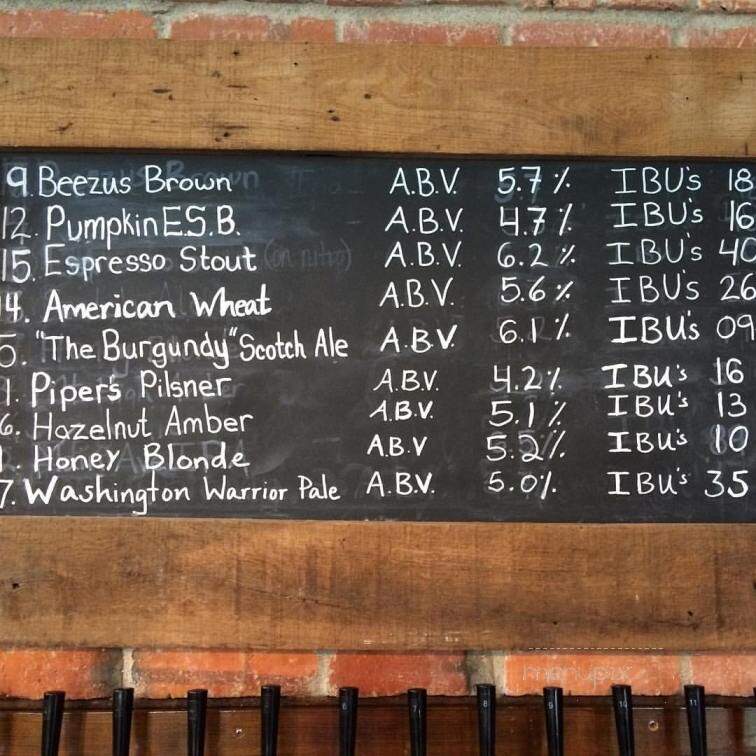 9. Beezus Brown A.B.V. 5.7% IBU's 18
12. Pumpkin E.S.B. A.B.V. 4.7% IBU's 16
15. Espresso Stout (on nitro) A.B.V. 6.2% IBU's 40
4. American Wheat A.B.V. 5.6% IBU's 26
5. "The Burgundy" Scotch Ale A.B.V 6.1% IBU's 09
1. Piper's Pilsner A.B.V. 4.2% IBU's 16
6. Hazelnut Amber A.B.V. 5.1% IBU's 13
. Honey Blonde A.B.V 5.2% IBU's 10
7. Washington Warrior Pale A.B.V. 5.0% IBU's 35
menupix
7 8 9 10 11